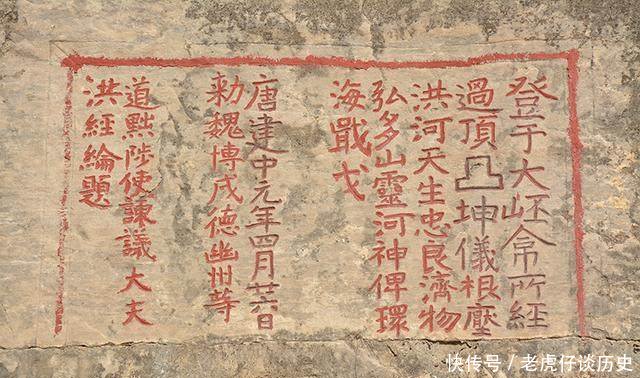 登于大岯所經
過頂凸坤儀根壓
洪河天生忠良濟物
弘多山靈河神俾環
海戢戈
唐建中元年四月廿六日
勑魏博成德幽州等
道黜陟使諫議大夫
洪經綸題
快传号/老虎仔谈历史